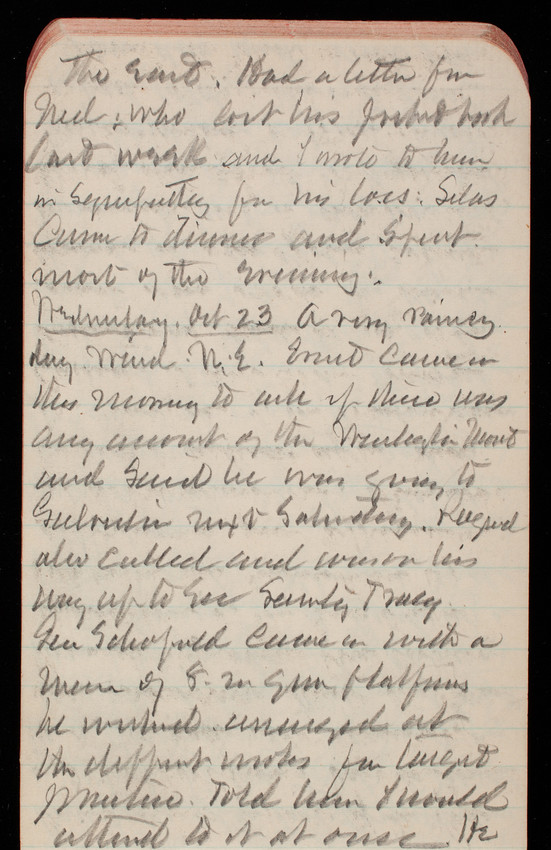 the East. Had a letter from
Ned, who lost his pocket book
last week and I wrote to him
in sympathy for his loss. Silas
came to dinner and spent
most of the evening.
Wednesday, Oct 23 A very rainy
day wind N.E. Ernst came in
this morning to ask if there was
any account of the Washington Mont
and said he was going to
next Saturday.
also called and was on his
way up to see Secretary Tracy
Gen Schofield came in with a
memo of 8. in gun platforms
he wished arranged at
the different works for target
practice. Told him I would
attend to it at once. He